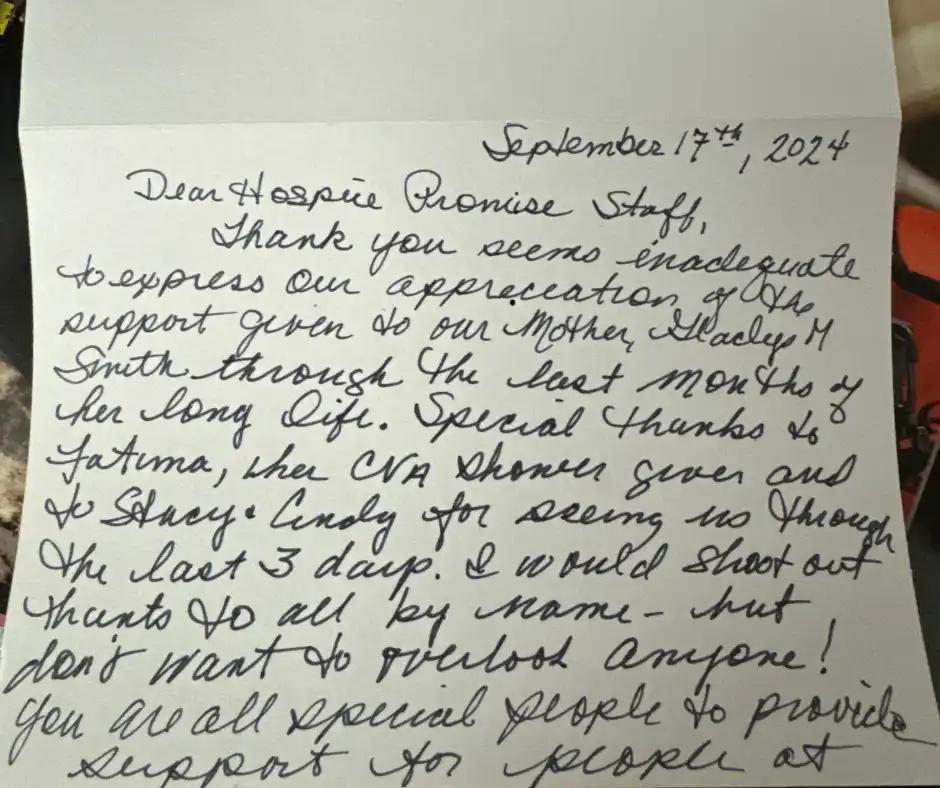 September 17th, 2024
Dear Hospice Promise Staff,
Thank you seems inadequate
to express our appreciation of the
support given to our Mother, Gladys M
Smith through the last months of
her long life. Special thanks to
Fatima, her CNA shower giver and
to Stacy & Cindy for seeing us through
the last 3 days. I would shoot out
thanks to all by name - but
don't want to overlook anyone!
You are all special people to provide
support for people at